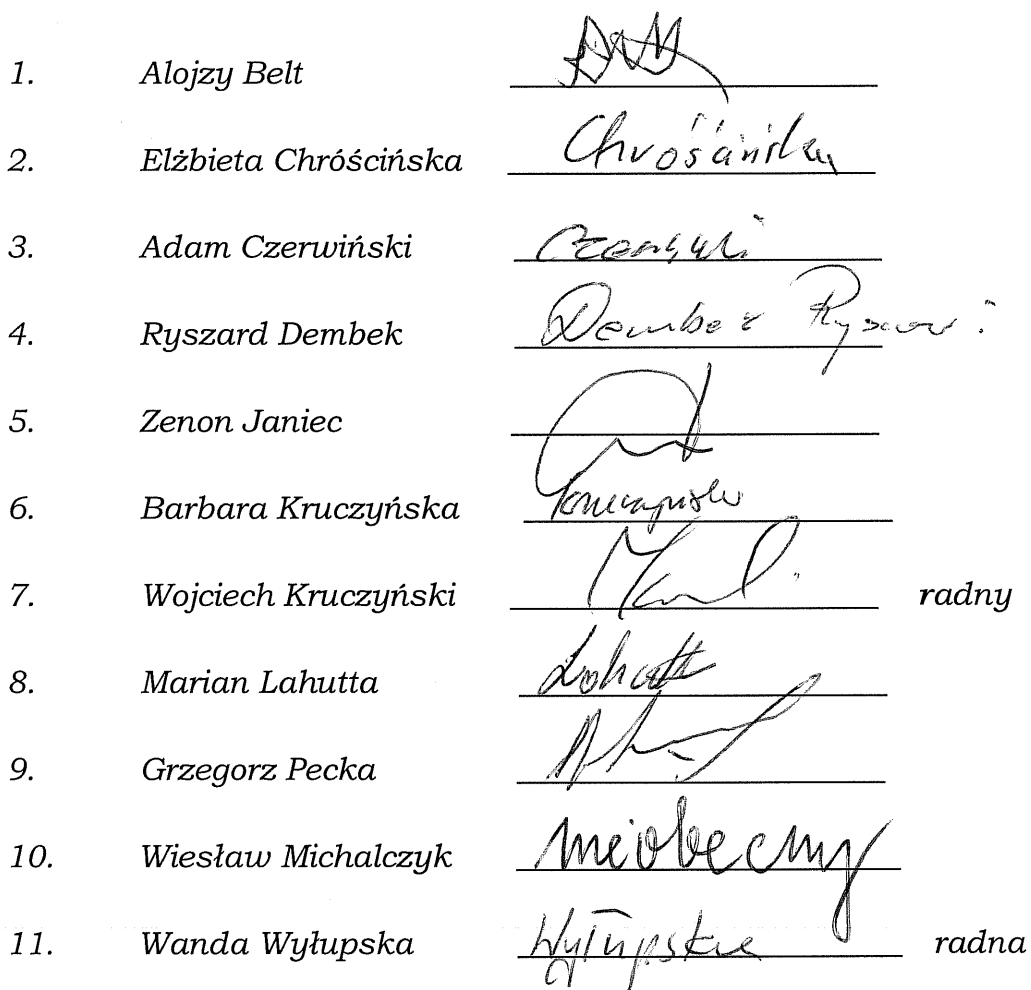 1. Alojzy Belt
2. Elżbieta Chróścińska Chróścińska
3. Adam Czerwiński
4. Ryszard Dembek Dembek Ryszard
5. Zenon Janiec
6. Barbara Kruczyńska
7. Wojciech Kruczyński radny
8. Marian Lahutta
9. Grzegorz Pecka
10. Wiesław Michalczyk nieobecny
11. Wanda Wyłupska Wyłupska radna